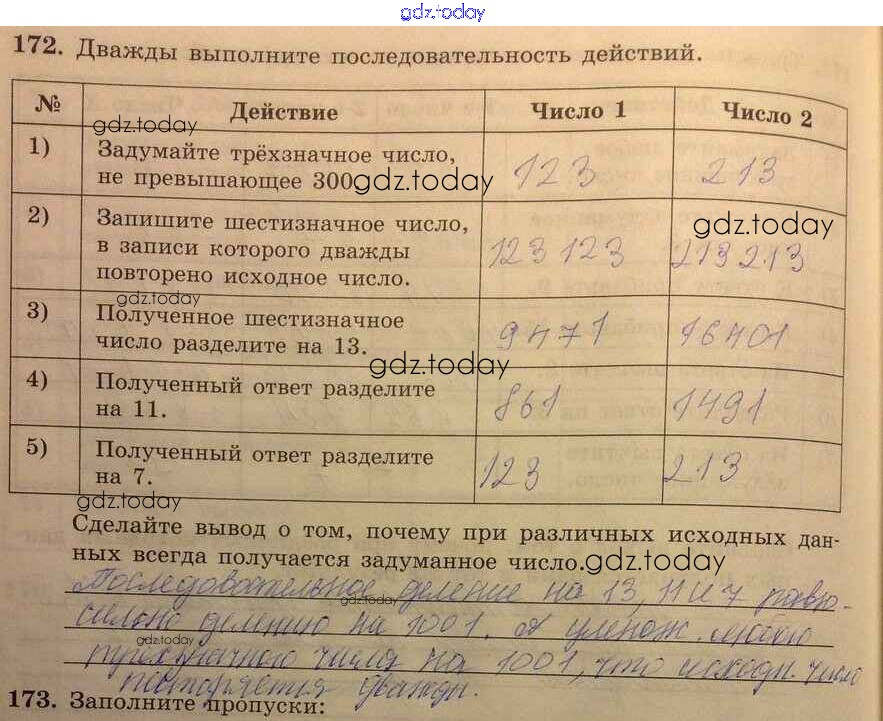 gdz.today
172. Дважды выполните последовательность действий.
№ Действие Число 1 Число 2
gdz.today
1) Задумайте трёхзначное число,
не превышающее 300 123 213
gdz.today
2) Запишите шестизначное число,
gdz.today
в записи которого дважды 123 123 213 213
повторено исходное число.
gdz.today
3) Полученное шестизначное
число разделите на 13. 9471 16401
gdz.today
4) Полученный ответ разделите
на 11. 861 1491
5) Полученный ответ разделите
на 7. 123 213
gdz.today
Сделайте вывод о том, почему при различных исходных дан-
ных всегда получается задуманное число.
gdz.today
Последовательное деление на 13, 11 и 7 равно-
gdz.today
сильно делению на 1001. А умнож. любого
gdz.today
трёхзначного числа на 1001, что исходн. число
повторяется дважды.
173. Заполните пропуски: